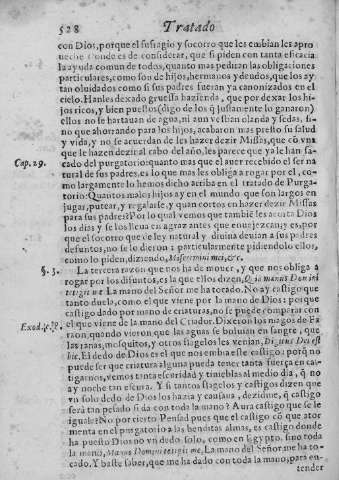 528 Tratado
con Dios, porque el sufragio y socorro que les embian les apro
ueche. Donde es de considerar, que si piden con tanta eficacia
la ayuda comun de todos, quanto mas pediran las obligaciones
particulares, como son de hijos, hermanos y deudos, que los ay
tan oluidados como si sus padres fueran ya canonizados en el
cielo. Hanles dexado gruessa hazienda, que por dexar los hi-
jos ricos, y bien puestos (digo de los q̃ justamente lo ganaron)
ellos no se hartauan de agua, ni aun vestian olanda y sedas, si-
no que ahorrando para los hijos, acabaron mas presto su salud
y vida, y no se acuerdan de les hazer dezir Missas, que cõ vna
que le hazen dezir al cabo del año, les parece que ya le han sa-
Cap. 29.
cado del purgatorio: quanto mas que el auer recebido el ser na
tural de sus padres, es lo que mas les obliga a rogar por el, co-
mo largamente lo hemos dicho arriba en el tratado de Purga-
torio: Quantos malos hijos ay en el mundo que son largos en
jugar, putear, y regalarse, y quan cortos en hazer dezir Missas
para sus padres? Por lo qual vemos que tambiẽ les acorta Dios
los dias y se los lleua en agraz antes que enuejezcan; y es, por
que el socorro que de ley natural y diuina deuian a sus padres
defuntos, no se lo dieron: particularmente pidiendolo ellos,
como lo piden, diziendo, Miseremini mei, &c.
§. 3.
La tercera razon que nos ha de mouer, y que nos obliga à
rogar por los difuntos, es la que ellos dizen, Quia manus Domini
tetigit me. La mano del Señor me ha tocado. No ay castigo que
tanto duela, como el que viene por la mano de Dios: porque
castigo dado por mano de criaturas, no se puede comparar con
Exod. 4. 8.
el que viene de la mano del Criador. Dixeron los magos de Fa
raon, quando vieron que las aguas se boluian en sangre, que
las ranas, mosquitos, y otros flagelos les venian, Digitus Dei est
hic, El dedo de Dios es el que nos embia este castigo: porq̃ no
puede ser que criatura alguna pueda tener tanta fuerça en cas-
tigarnos, vemos tanta escuridad y tinieblas al medio dia, q̃ no
ay noche tan escura. Y si tantos flagelos y castigos dizen que
vn solo dedo de Dios los hazia y causaua, dezidme, q̃ castigo
serà tan pesado si da con toda la mano? Aura castigo que se le
iguale? No por cierto. Pensad pues que el castigo cõ que ator
menta en el purgatorio a las benditas almas, es castigo donde
ha puesto Dios no vn dedo solo, como en Egypto, sino toda
la mano, Manus Domini tetigit me, La mano del Señor me ha to-
cado. Y baste saber, que me ha dado con toda la mano, para en-
tender